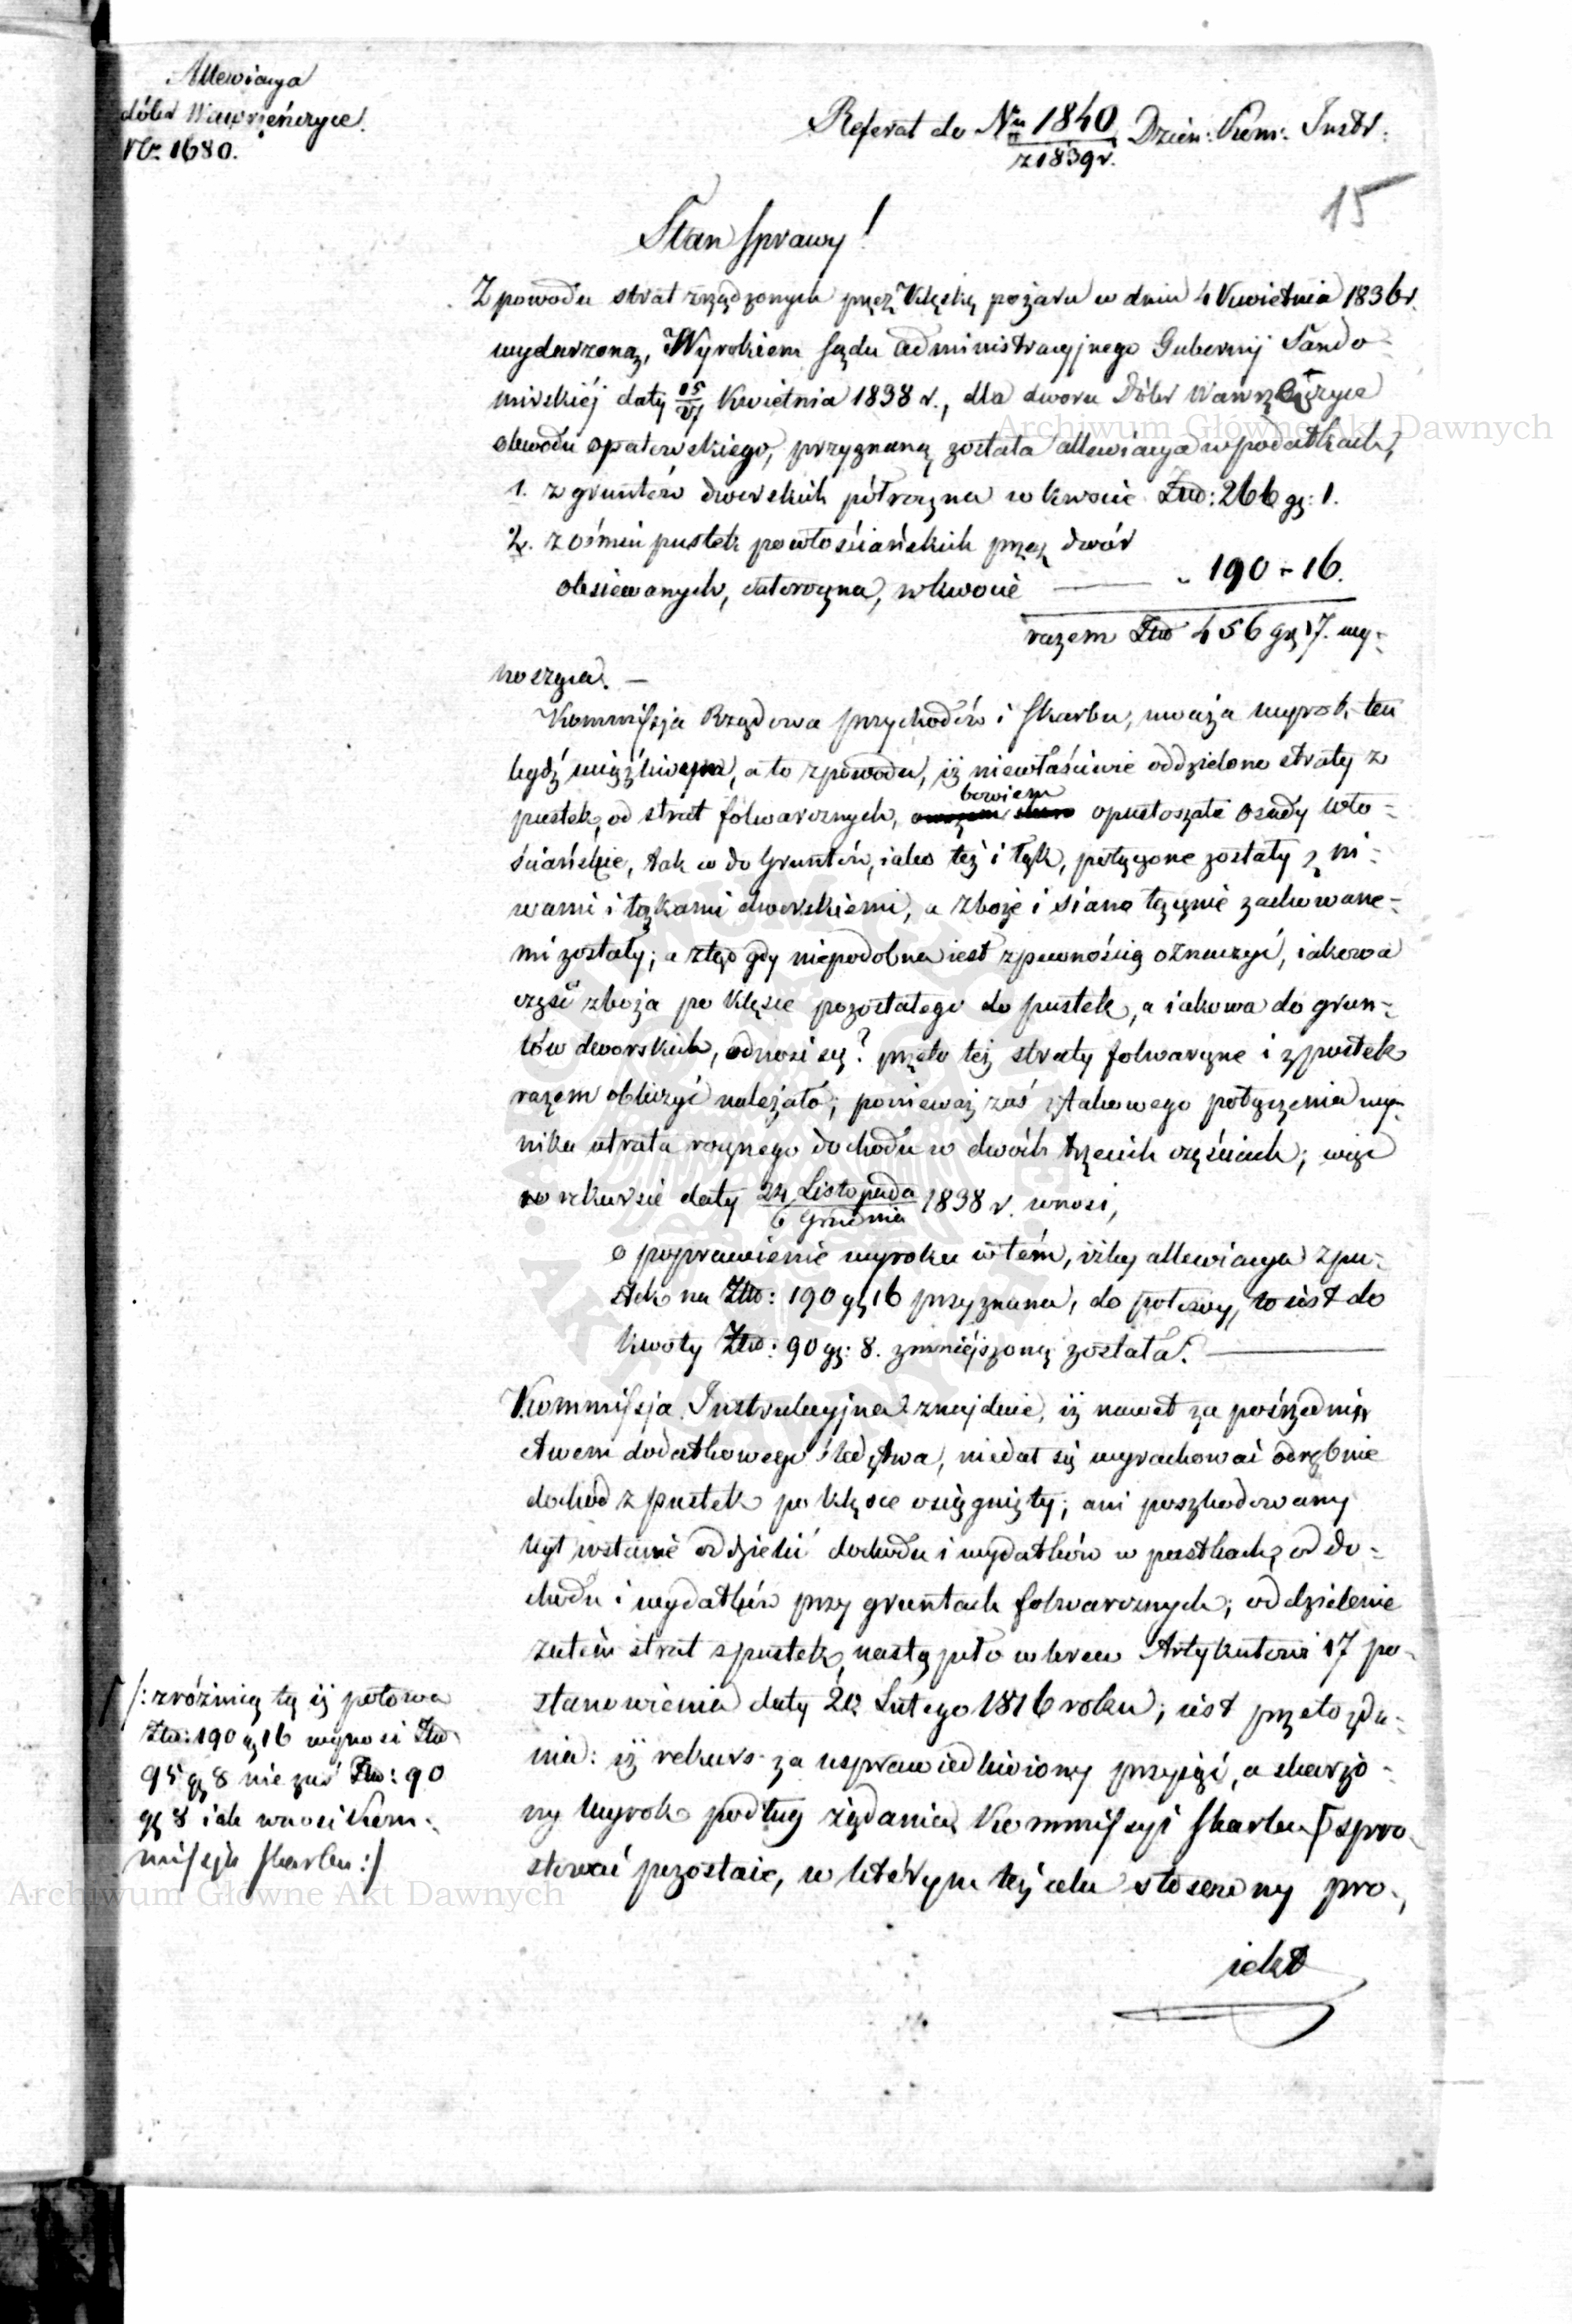 Allewiacya
dóbr Wawrzeńczyce.
Nr. 1680.
Referat do Nru 1840 Dzien: Kom: Instr:
z 1839 r.
15
Stan sprawy!
Z powodu strat zrządzonych przez klęskę pożaru w dniu 4 Kwietnia 1836 r.
wydarzoną, Wyrokiem Sądu administracyjnego Gubernij Sando=
mirskiéj daty 15/27 Kwietnia 1838 r., dla dworu Dóbr Wawrzeńczyce
obwodu opatowskiego, przyznaną została allewiacya w podatkach,
1. z gruntów dworskich półroczna w kwocie Złp: 266 gr: 1.
2. z ośmiu pustek powłościańskich przez dwór
obsiewanych, całoroczna, w kwocie — „ 190 - 16.
razem Złp 456 gr 17. wy=
nosząca. —
Kommissja Rządowa przychodów i skarbu, uważa wyrok ten
bydź uciążliwym, a to z powodu, iż niewłaściwie oddzielono straty z
pustek, od strat folwarcznych, bowiem opustoszałe osady wło=
ściańskie, tak co do Gruntów, iako też i łąk, połączone zostały z ni=
wami i łąkami dworskiemi, a zboże i siano łącznie zachowane=
mi zostały; a ztąd gdy niepodobna iest z pewnością oznaczyć, iakowa
część zboża po klęsce pozostałego do pustek, a iakowa do grun=
tów dworskich, odnosi się? przeto też straty folwarczne i z pustek
razem obliczyć należało; ponieważ zaś z takowego połączenia wy=
nika utrata rocznego dochodu w dwóch trzecich częściach; więc
w rekursie daty 24 Listopada / 6 Grudnia 1838 r. wnosi,
o poprawienie wyroku w tém, iżby allewiacya z pu=
stek na Złp: 190 gr 16 przyznana, do połowy, to iest do
kwoty Złp: 90 gr: 8. zmniejszoną została. —
Kommissja Instrukcyjna znajduie, iż nawet za pośrzednic
stwem dodatkowego śledztwa, niedał się wyrachować odrębnie
dochód z pustek po klęsce osiągnięty; ani poszkodowany
był wstanie oddzielić dochodu i wydatków w pustkach, od do=
chodu i wydatków przy gruntach folwarcznych; oddzielenie
zatém strat z pustek, nastąpiło wbrew Artykułowi 17 po=
stanowienia daty 20 Lutego 1816 roku; iest przeto zda=
nia: iż rekurs za usprawiedliwiony przyiąć, a skarżo=
ny Wyrok podług żądania Kommissyi skarbu [ spro=
stować pozostaie, w którym też celu stosowny pro=
iekt
/: z różnicą tą iż połowa
Złp: 190 gr 16 wynosi Złp
95 gr 8 nie zaś Złp: 90
gr 8 iak wnosi Kom=
missyia skarbu :/
Archiwum Główne Akt Dawnych
Archiwum Główne Akt Dawnych